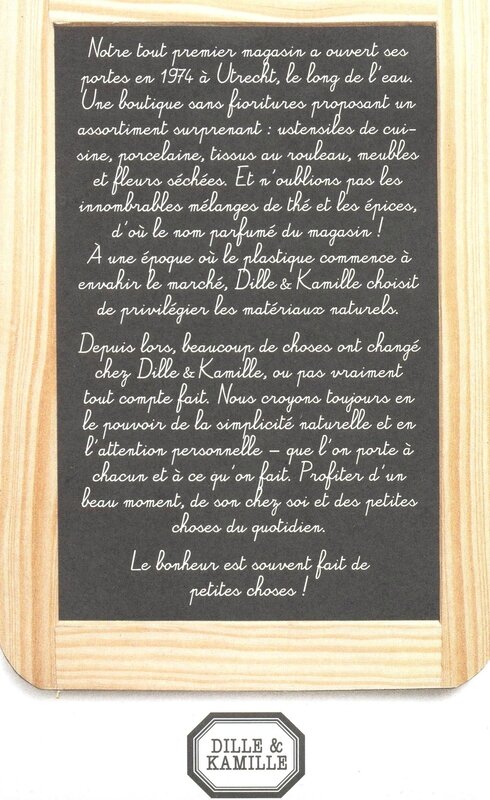 Notre tout premier magasin a ouvert ses
portes en 1974 à Utrecht, le long de l'eau.
Une boutique sans fioritures proposant un
assortiment surprenant : ustensiles de cui-
sine, porcelaine, tissus au rouleau, meubles
et fleurs séchées. Et n'oublions pas les
innombrables mélanges de thé et les épices,
d'où le nom parfumé du magasin !
À une époque où le plastique commence à
envahir le marché, Dille & Kamille choisit
de privilégier les matériaux naturels.
Depuis lors, beaucoup de choses ont changé
chez Dille & Kamille, ou pas vraiment
tout compte fait. Nous croyons toujours en
le pouvoir de la simplicité naturelle et en
l'attention personnelle – que l'on porte à
chacun et à ce qu'on fait. Profiter d'un
beau moment, de son chez soi et des petites
choses du quotidien.
Le bonheur est souvent fait de
petites choses !
DILLE &
KAMILLE